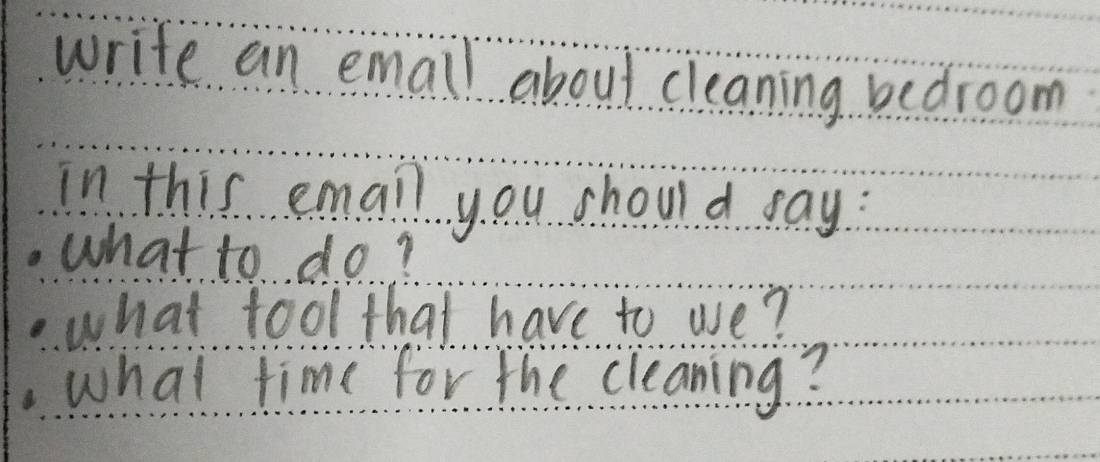 write an email about cleaning bedroom
in this email you should say:
• what to do?
• what tool that have to we?
• what time for the cleaning?